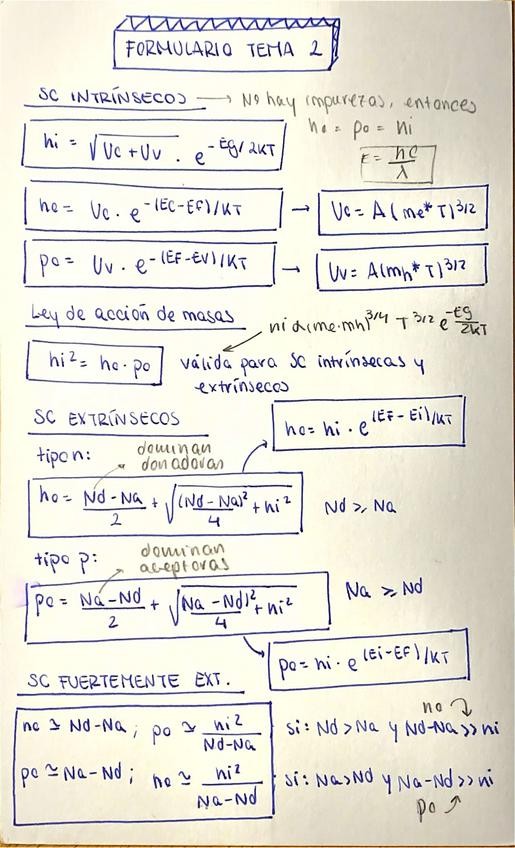 FORMULARIO TEMA 2
SC INTRÍNSECOS → No hay impurezas, entonces
no = po = ni
ni = √Uc + Uv · e^-Eg/2KT
E = hc/λ
no = Uc · e^-(Ec-EF)/KT → Uc = A(me* T)^3/2
po = Uv · e^-(EF-EV)/KT → Uv = A(mh* T)^3/2
Ley de acción de masas
ni α (me·mh)^3/4 T^3/2 e^-Eg/2KT
ni² = no · po válida para SC intrínsecas y
extrínsecos
SC EXTRÍNSECOS
no = ni · e^(EF - Ei)/KT
tipo n: dominan
donadoras
no = Nd - Na/2 + √(Nd - Na)²/4 + ni² Nd ≥ Na
tipo p: dominan
aceptoras
po = Na - Nd/2 + √(Na - Nd)²/4 + ni² Na ≥ Nd
po = ni · e^(Ei - EF)/KT
SC FUERTEMENTE EXT.
no
no ≃ Nd - Na ; po ≃ ni²/Nd-Na si: Nd > Na y Nd-Na >> ni
po ≃ Na - Nd ; no ≃ ni²/Na-Nd si: Na > Nd y Na-Nd >> ni
po